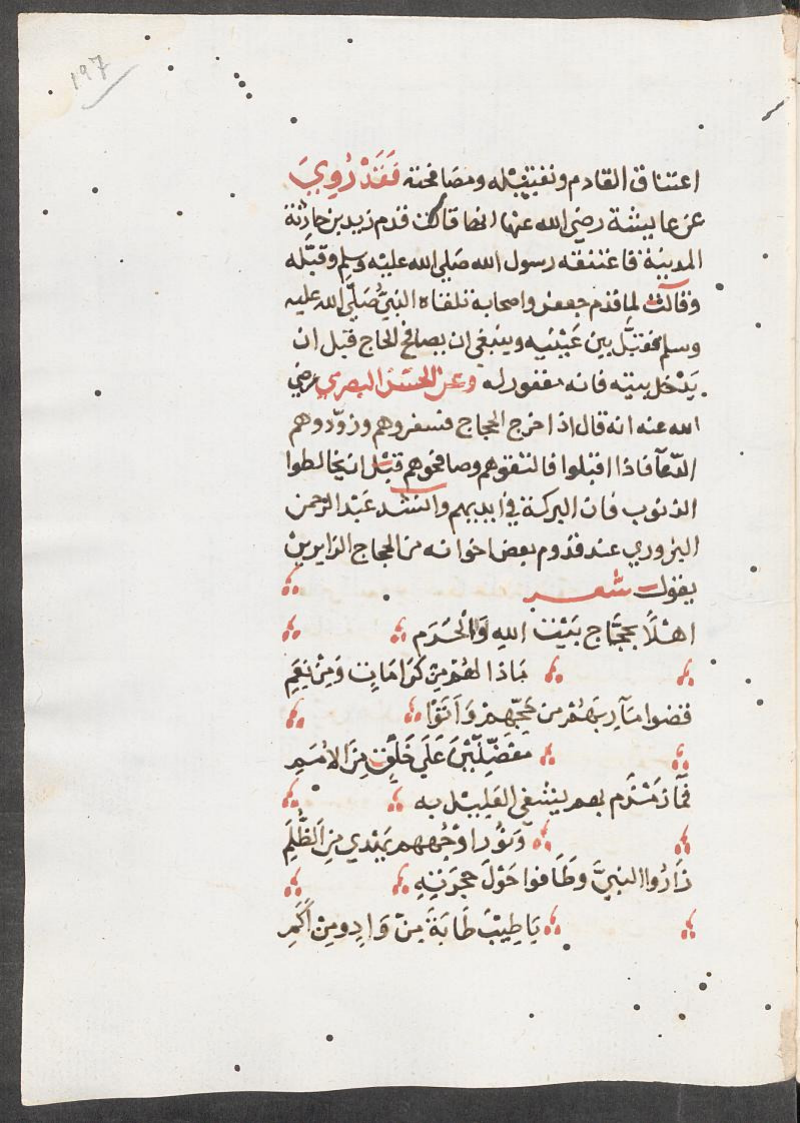 ١٩٦
اعتناق القادم وتقبيله ومصافحته فَقَدْ رُوِيَ
عن عايشة رضي الله عنها انها قالت قدم زيد بن حارثة
المدينة فاعتنقه رسول الله صَلى الله عليْه وسلم وقبّله
وقالت لما قدم جعفر واصحابه تلقاه النبيُّ صَلّى الله عليه
وسلم فقبَّل بين عَيْنَيه وينبغي ان يصافح الحاج قبل ان
يَدْخل بيته فانه مغفور له وعن الحسَن البصري رضي
الله عنه انه قال اذا خرج الحجاج فسفروهم وزوّدوهم
الدّعآ فاذا اقبلوا فالتقوهم وصافحوهم قبْل ان يخالطوا
الذنوب فان البركة في ايديهم وانشد عَبْد الرحمن
اليزوري عند قدوم بعض اخوانه من الحجاج الزايرين
يقول شعر
اهْلًا بحجّاج بَيْت اللهِ وَالْحَرَم
مَاذا لهُمْ مِن كَرَامَاتٍ وَمِنْ نِعَمِ
قضوا مَآربهُمْ من حَجّهِمْ وَاَتَوْا
مفَضَّليْنَ عَلَى خَلْقٍ مِنَ الاُمَمِ
فَمآ زمْزَم بهم يشفى الغَليْل به
وَنُوْر اوْجُههم يَهْدي مِن الظُّلَمِ
زَارُوا النبيَّ وَطَافوا حَوْلَ حجرَتِهِ
يَا طِيْبَ طَابَةَ مِنْ وَادٍ ومِنْ اَكَمِ